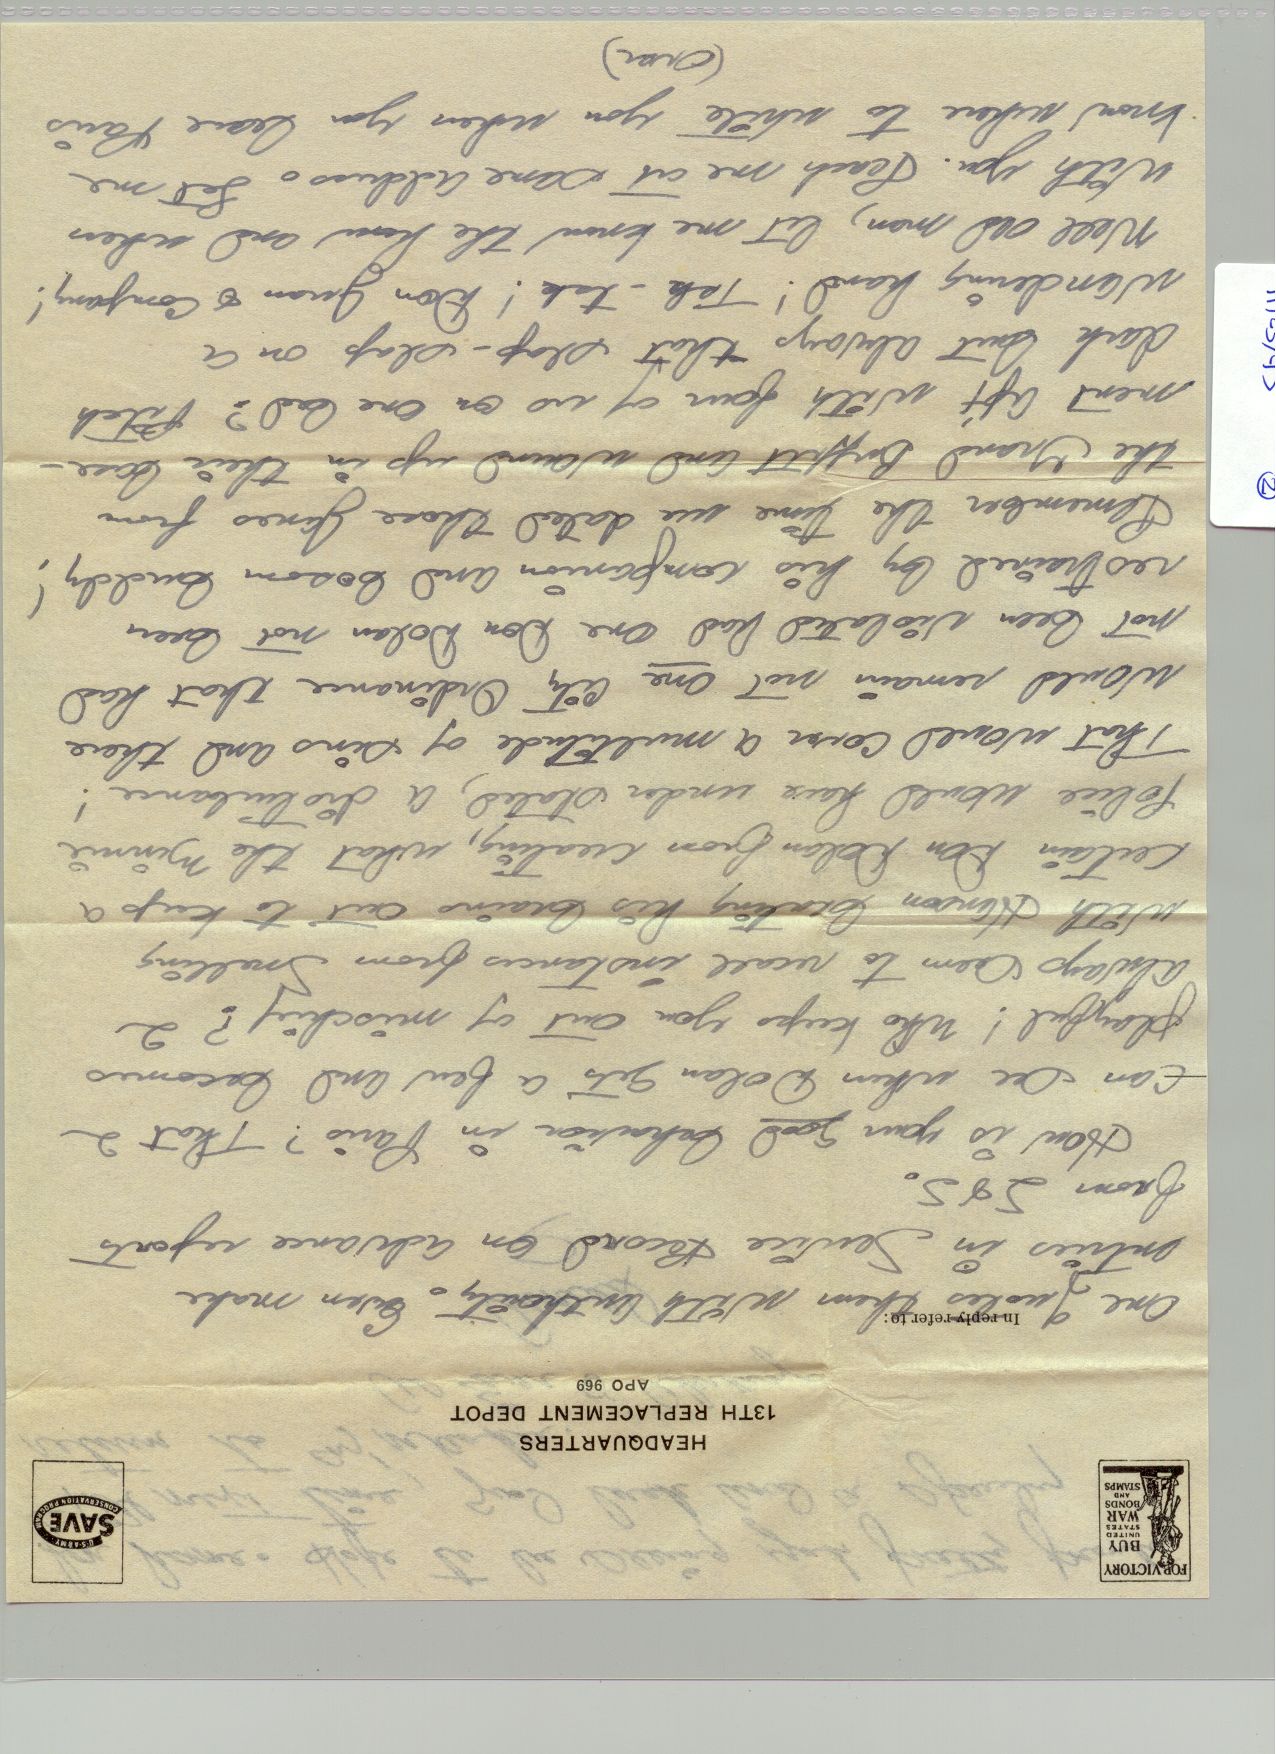 FOR VICTORY
BUY
UNITED
STATES
WAR
BONDS
AND
STAMPS
U.S. ARMY
SAVE
CONSERVATION PROGRAM
HEADQUARTERS
13TH REPLACEMENT DEPOT
APO 969
In reply refer to:
one quotes them with authority. Even make
entries in Service Record on advance reports
from I & S.
How is your good behavior in Paris? That I
can see when Dolan gets a few and becomes
playful! Who keeps you out of mischief? I
always seem to recall instances from Snelling
with Hanson beating his brains out to keep a
certain Don Dolan from creating, what the Minnie
Police would have under stated, a disturbance!
That would cover a multitude of sins and there
would remain not one city Ordinance that had
not been violated had one Don Dolan not been
restrained by his companion and bosom buddy!
Remember the time we dated those fines from
the Grand Buffett and wound up in their base-
ment apt with four of us on one bed? Pitch
dark but always that slap-slap on a
wandering hand! Tsk-tsk! Don Juan & Company!
Well old man, let me know the how and when
with you. Reach me at same address. Let me
know where to write you when you leave Paris
(Over)
11/23/45
②